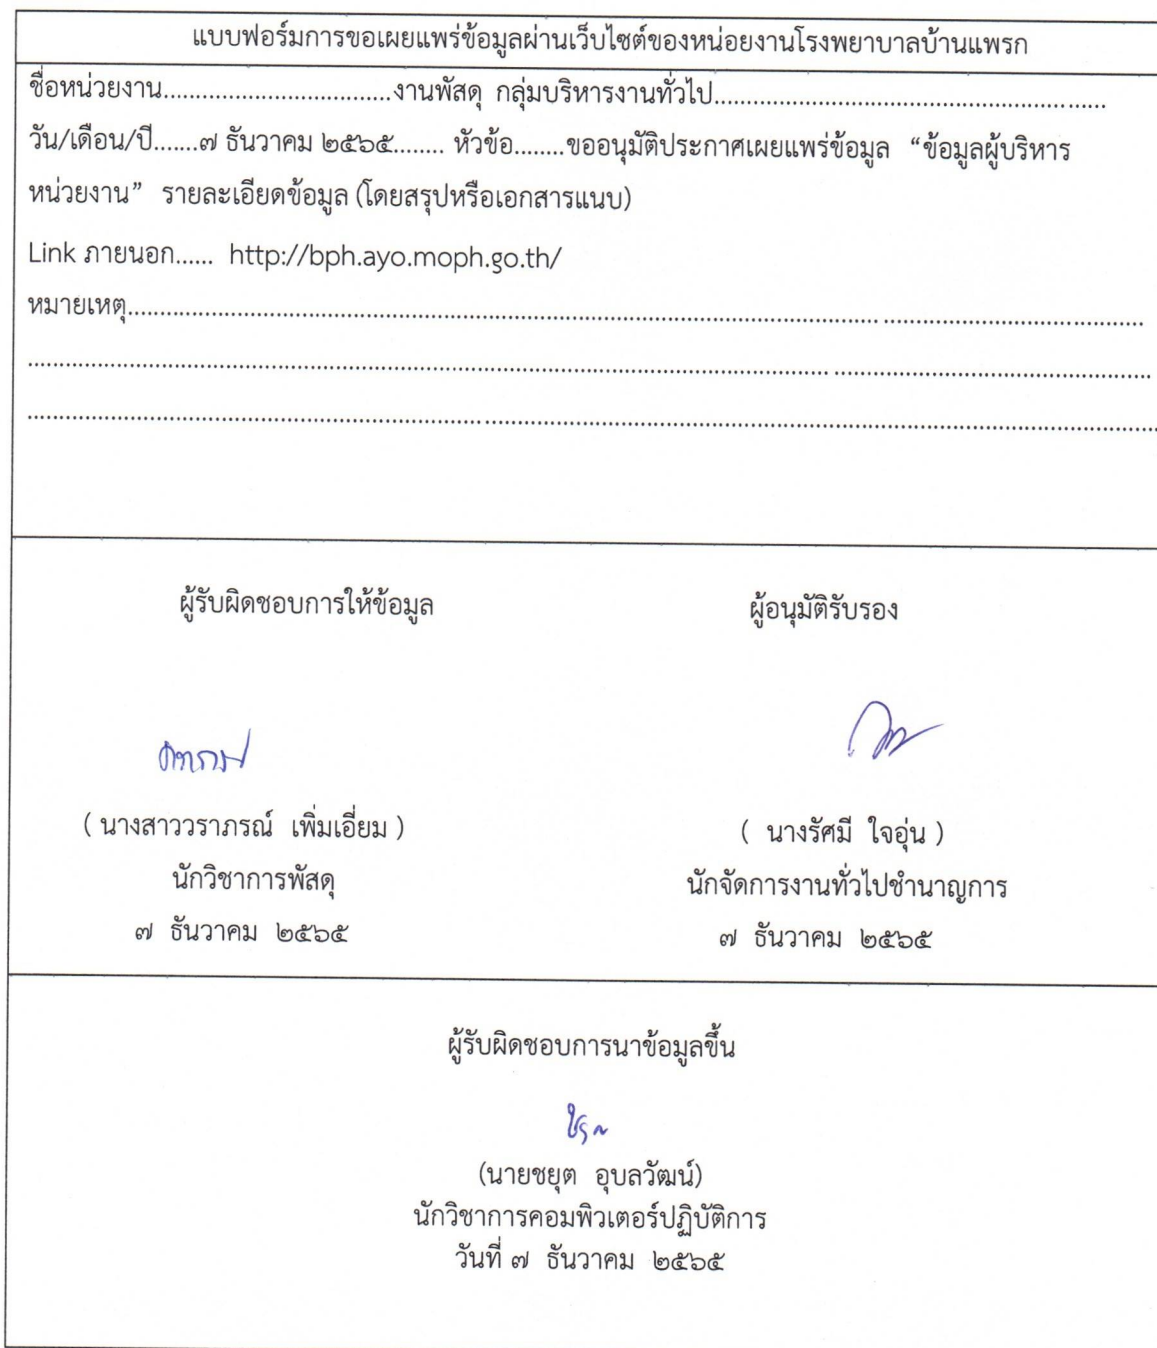 แบบฟอร์มการขอเผยแพร่ข้อมูลผ่านเว็บไซต์ของหน่อยงานโรงพยาบาลบ้านแพรก
ชื่อหน่วยงาน...................................งานพัสดุ กลุ่มบริหารงานทั่วไป............................................................
วัน/เดือน/ปี.......๗ ธันวาคม ๒๕๖๕........ หัวข้อ........ขออนุมัติประกาศเผยแพร่ข้อมูล “ข้อมูลผู้บริหาร
หน่วยงาน” รายละเอียดข้อมูล (โดยสรุปหรือเอกสารแนบ)
Link ภายนอก...... http://bph.ayo.moph.go.th/
หมายเหตุ....................................................................................................................................................
....................................................................................................................................................................
....................................................................................................................................................................
ผู้รับผิดชอบการให้ข้อมูล
ผู้อนุมัติรับรอง
( นางสาววราภรณ์ เพิ่มเอี่ยม )
( นางรัศมี ใจอุ่น )
นักวิชาการพัสดุ
นักจัดการงานทั่วไปชำนาญการ
๗ ธันวาคม ๒๕๖๕
๗ ธันวาคม ๒๕๖๕
ผู้รับผิดชอบการนาข้อมูลขึ้น
(นายชยุต อุบลวัฒน์)
นักวิชาการคอมพิวเตอร์ปฏิบัติการ
วันที่ ๗ ธันวาคม ๒๕๖๕